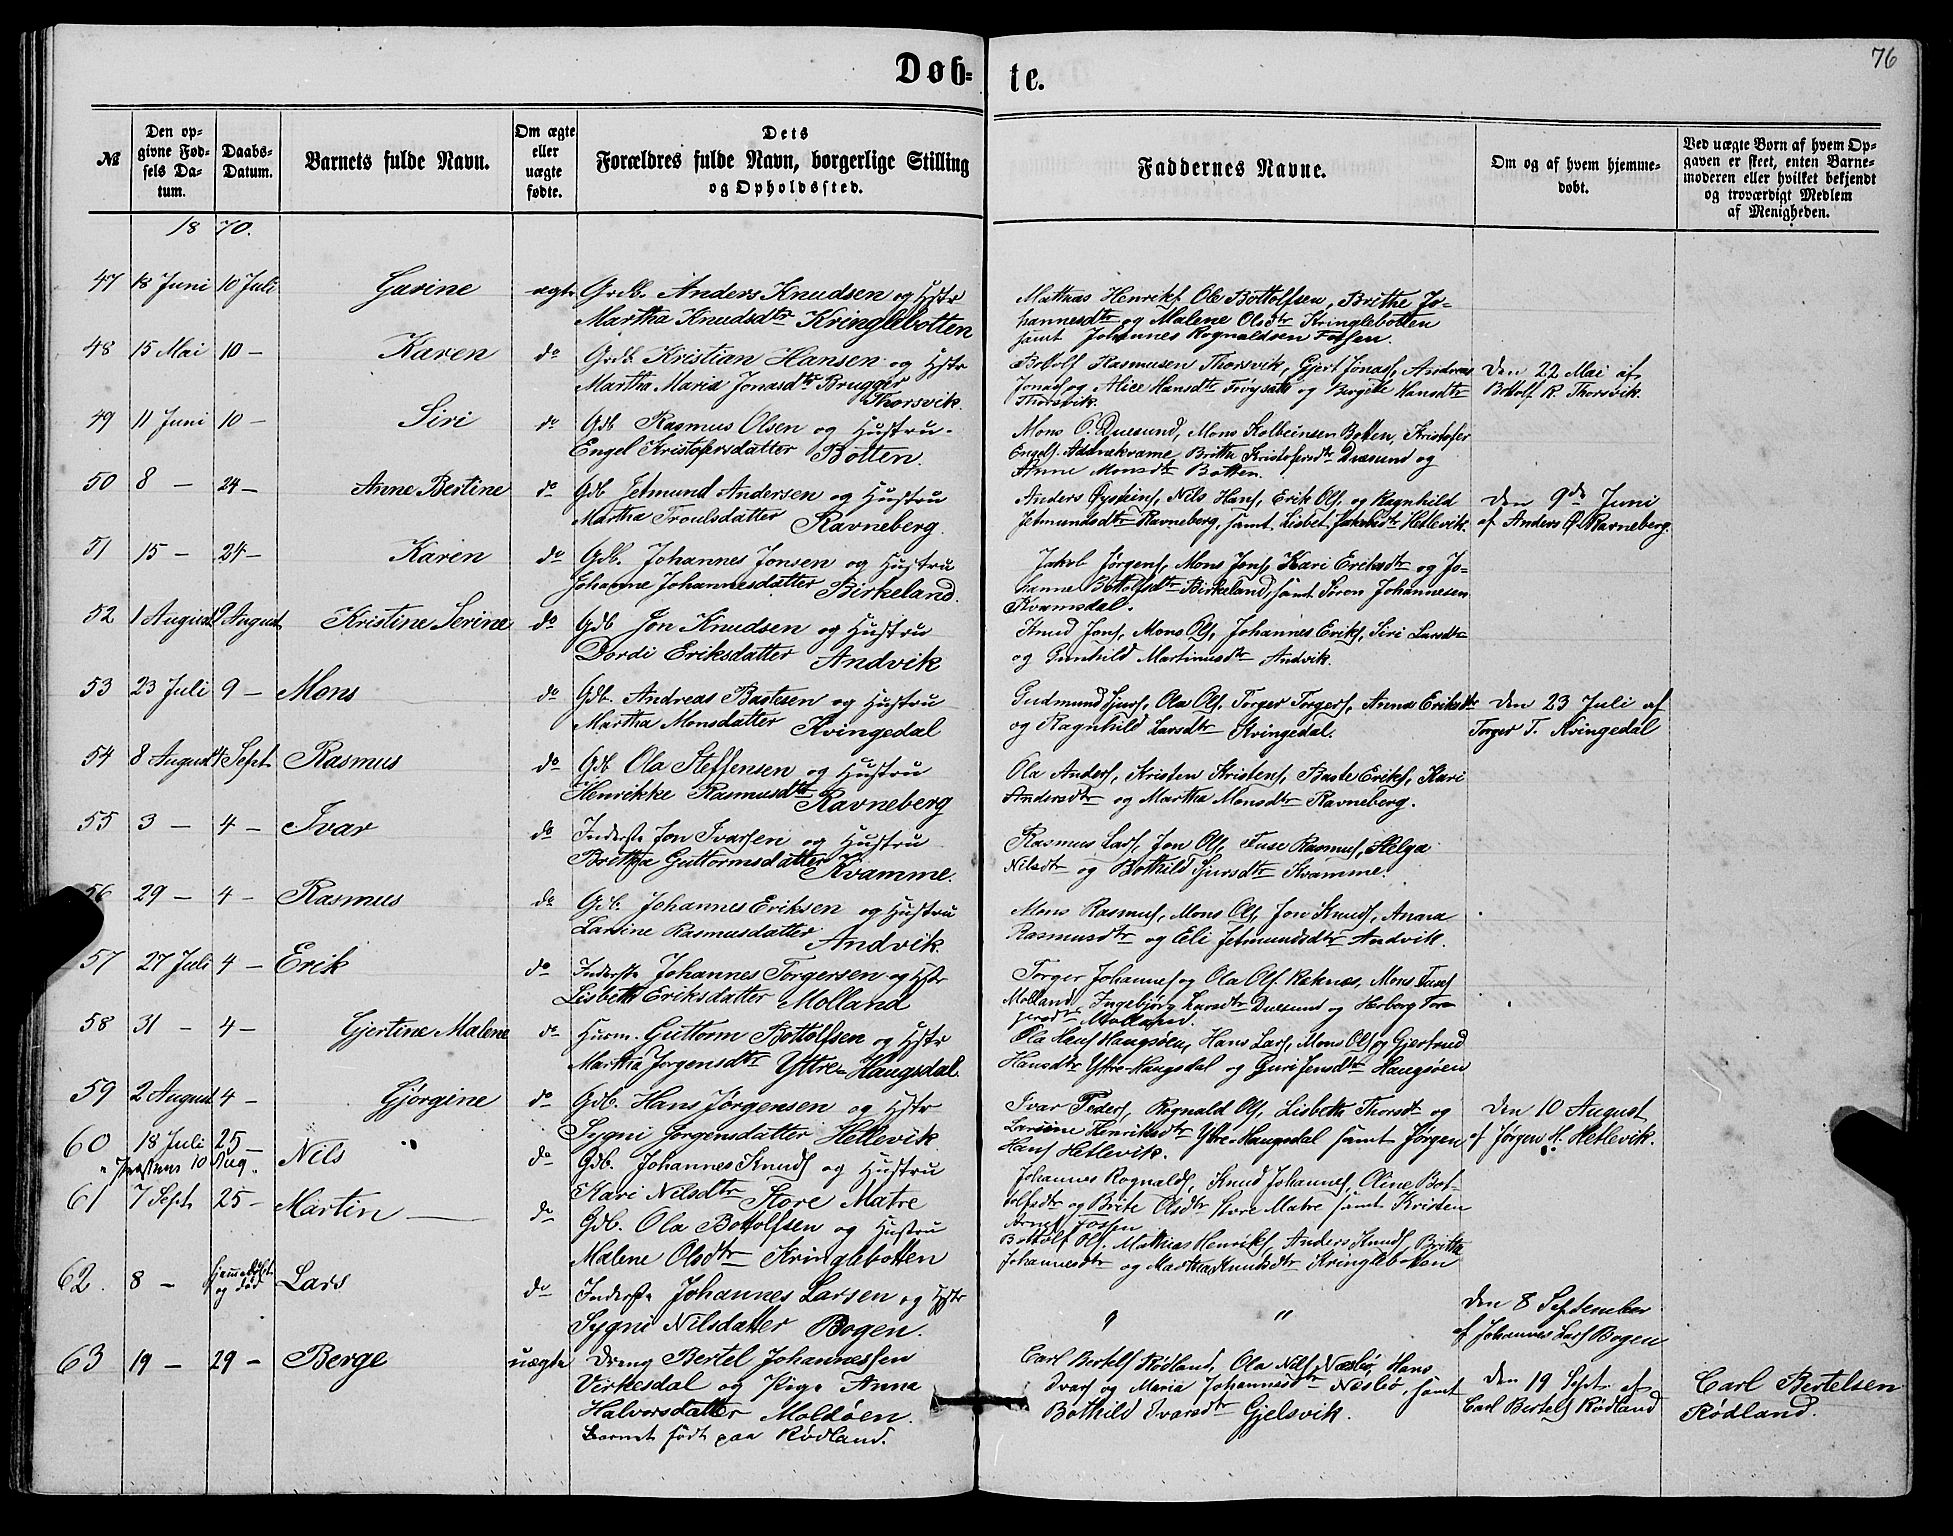 76
Døb-te.
№
Den op-
givne Fød-
sels Da-
tum.
Daabs-
Datum.
Barnets fulde Navn.
Om ægte
eller
uægte
fødte.
Dets
Forældres fulde Navn, borgerlige Stilling
og Opholdssted.
Faddernes Navne.
Om og af hvem hjemme-
døbt.
Ved uægte Børn af hvem Op-
gaven er skeet, enten Barne-
moderen eller hvilket bekjendt
og troværdigt Medlem
af Menigheden.
1870.
47 18 Juni 10 Juli Garine ægte Grdb. Anders Knudsen og Hstr
Martha Knudsdtr Kringlebotten
Mathias Henriks. Ole Bottolfsen, Brithe Jo-
hannesdtr og Malene Olsdtr Kringlebotten
samt Johannes Rognaldsen Fossen.
48 15 Mai 10 - Karen do Grdb Kristian Hansen og Hstr
Martha Maria Jonasdtr Brugger
Thorsvik.
Bottolf Rasmusen Thorsvik, Gjert Jonas, Andreas
Jonas og Alice Hansdtr Frøyset og Bergite Hansdtr
Thorsvik.
Den 22 Mai af
Bottolf R. Thorsvik.
49 11 Juni 10 - Siri do Gdb Rasmus Olsen og Hustru
Engel Kristofersdatter Botten.
Mons O. Duesund, Mons Kolbeinsen Botten, Kristofer
Engels. Adnekvame, Britha Kristofersdtr Duesund og
Anne Monsdtr Botten.
50 8 - 24 - Anne Bertine do Gdb Jetmund Andersen og Hustru
Martha Troulsdatter Ravneberg.
Anders Øysteins, Nils Hans, Erik Ols. og Ragnhild
Jetmundsdtr Ravneberg, samt Lisbet Jakobsdtr Hetlevik.
Den 9de Juni
af Anders Ø. Ravneberg.
51 15 - 24 - Karen do Gdb. Johannes Jonsen og Hustru
Johanne Johannesdatter Birkeland.
Jakob Jørgens, Mons Jons, Kari Eriksdtr og Jo-
hanne Bottolfsdtr Birkeland, samt Søren Johannesen
Kvamsdal.
52 1 August 9 August Kristine Serine do Gdb Jon Knudsen og Hustru
Dordi Eriksdatter Andvik
Knud Jons, Mons Ols, Johannes Eriks, Siri Larsdtr
og Gunhild Martinusdtr Andvik.
53 23 Juli 9 - Mons do Gdb. Andreas Bastesen og Hustru
Martha Monsdatter Kvingedal
Gudmund Sjurs, Ola Ols, Torger Torgers, Anna Eriksdtr
og Ragnhild Larsdtr Kvingedal.
Den 23 Juli af
Torger T. Kvingedal
54 8 August 4 Sept. Rasmus do Gdb Ola Steffensen og Hustru
Henrikke Rasmusdtr Ravneberg
Ola Anders, Kristen Kristens, Baste Eriks, Kari
Andersdtr og Martha Monsdtr Ravneberg.
55 3 - 4 - Ivar do Inderste Jon Ivarsen og Hustru
Britha Guttormsdatter Kvamme.
Rasmus Lars, Jon Ols, Tuse Rasmus, Helga
Nilsdtr og Bothild Sjursdtr Kvamme.
56 29 - 4 - Rasmus do Gdb. Johannes Eriksen og Hustru
Larsine Rasmusdatter Andvik.
Mons Rasmus, Mons Ols, Jon Knuds, Anna
Rasmusdtr og Eli Jetmundsdtr Andvik.
57 27 Juli 4 - Erik do Inderste Johannes Torgersen og Hstr
Lisbeth Eriksdatter Molland
Torger Johannes og Ola Ols. Raknæs, Mons Tuses
Molland, Ingebjørg Larsdtr Duesund og Herborg Tor-
gersdtr Molland.
58 31 - 4 - Gjertine Malene do Husm. Guttorm Bottolfsen og Hstr
Martha Jørgensdtr Yttre-Haugsdal.
Ola Hans Haugsøen, Hans Lars, Mons Ols og Gjertrud
Hansdtr Yttre-Haugsdal og Guri Jensdtr Haugsøen
59 2 August 4 - Gjørgine do Gdb. Hans Jørgensen og Hstr
Sygni Jørgensdatter Hetlevik
Ivar Peders, Rognald Ols, Lisbeth Thorsdtr og
Larsine Henriksdtr Ytre-Haugsdal samt Jørgen
Hans Hetlevik.
Den 10 August
af Jørgen H. Hetlevik.
60 18 Juli 25 - Nils do Gdb. Johannes Knuds og Hustru
10 Aug.
Kari Nilsdtr Store Matre
Johannes Rognalds, Knud Johannes, Oline Bot-
tolfsdtr og Brite Olsdtr Store Matre samt Kristen
Arnes Fossen
61 7 Sept 25 - Martin do Gdb. Ola Bottolfsen og Hustru
Malene Olsdtr Kringlebotten
Bottolf Ols. Mathias Henriks, Anders Knuds, Britha
Johannesdtr og Martha Knudsdtr Kringlebotten
62. 8 - hjemmedøbt
og død Lars do Inderste Johannes Larsen og Hstr
Sygni Nilsdatter Bogen.
" "
Den 8 September
af Johannes Lars Bogen
63 19 - 29 - Berge uægte Dreng Bertel Johannessen
Virkesdal og Pige Anna
Halvorsdatter Moldøen.
Barnet født paa Rødland.
Carl Bertels Rødland, Ola Nils Næsbø, Hans
Ivars og Maria Johannesdtr Næsbø, samt
Bothild Ivarsdtr Gjelsvik.
Den 19 Sept. af
Carl Bertels Rødland
Carl Bertelsen
Rødland.